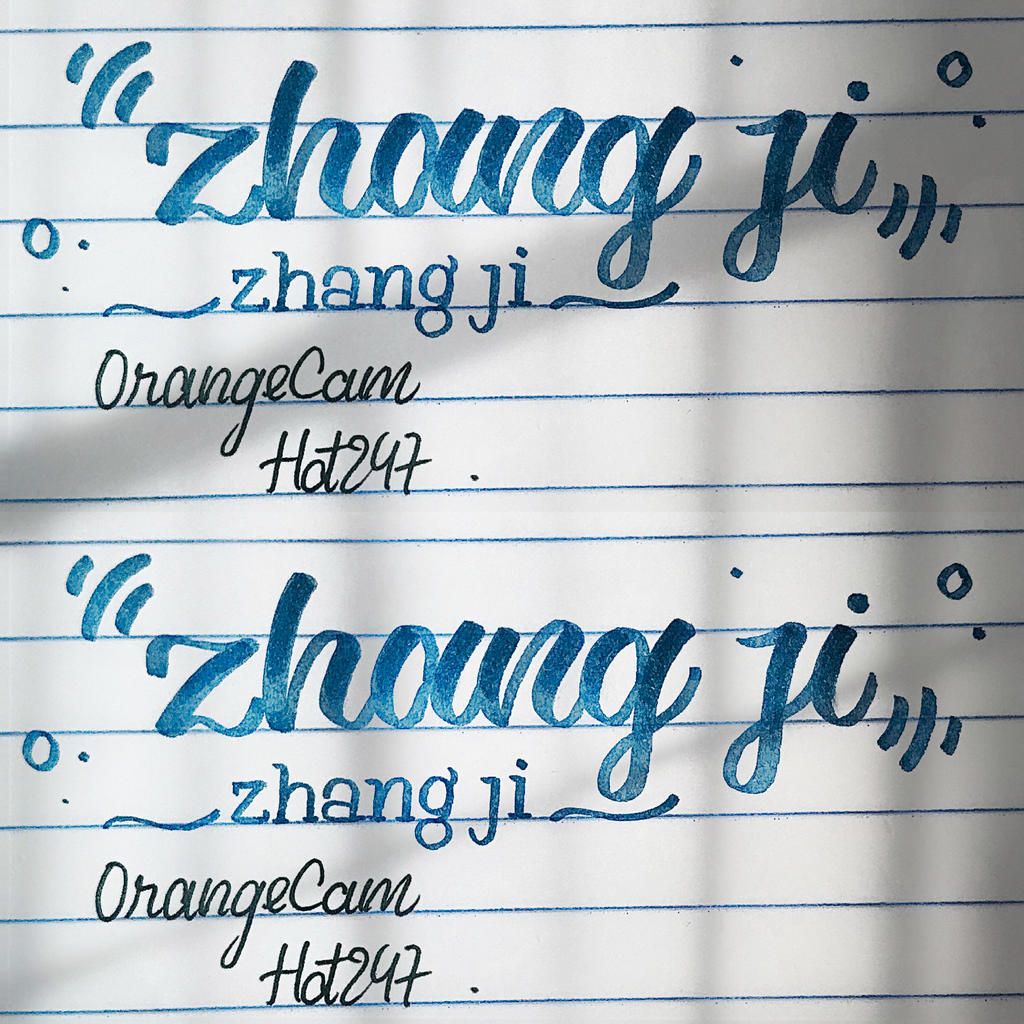 zhang ji
zhang ji
OrangeCam
Hot247
zhang ji
zhang ji
OrangeCam
Hot247